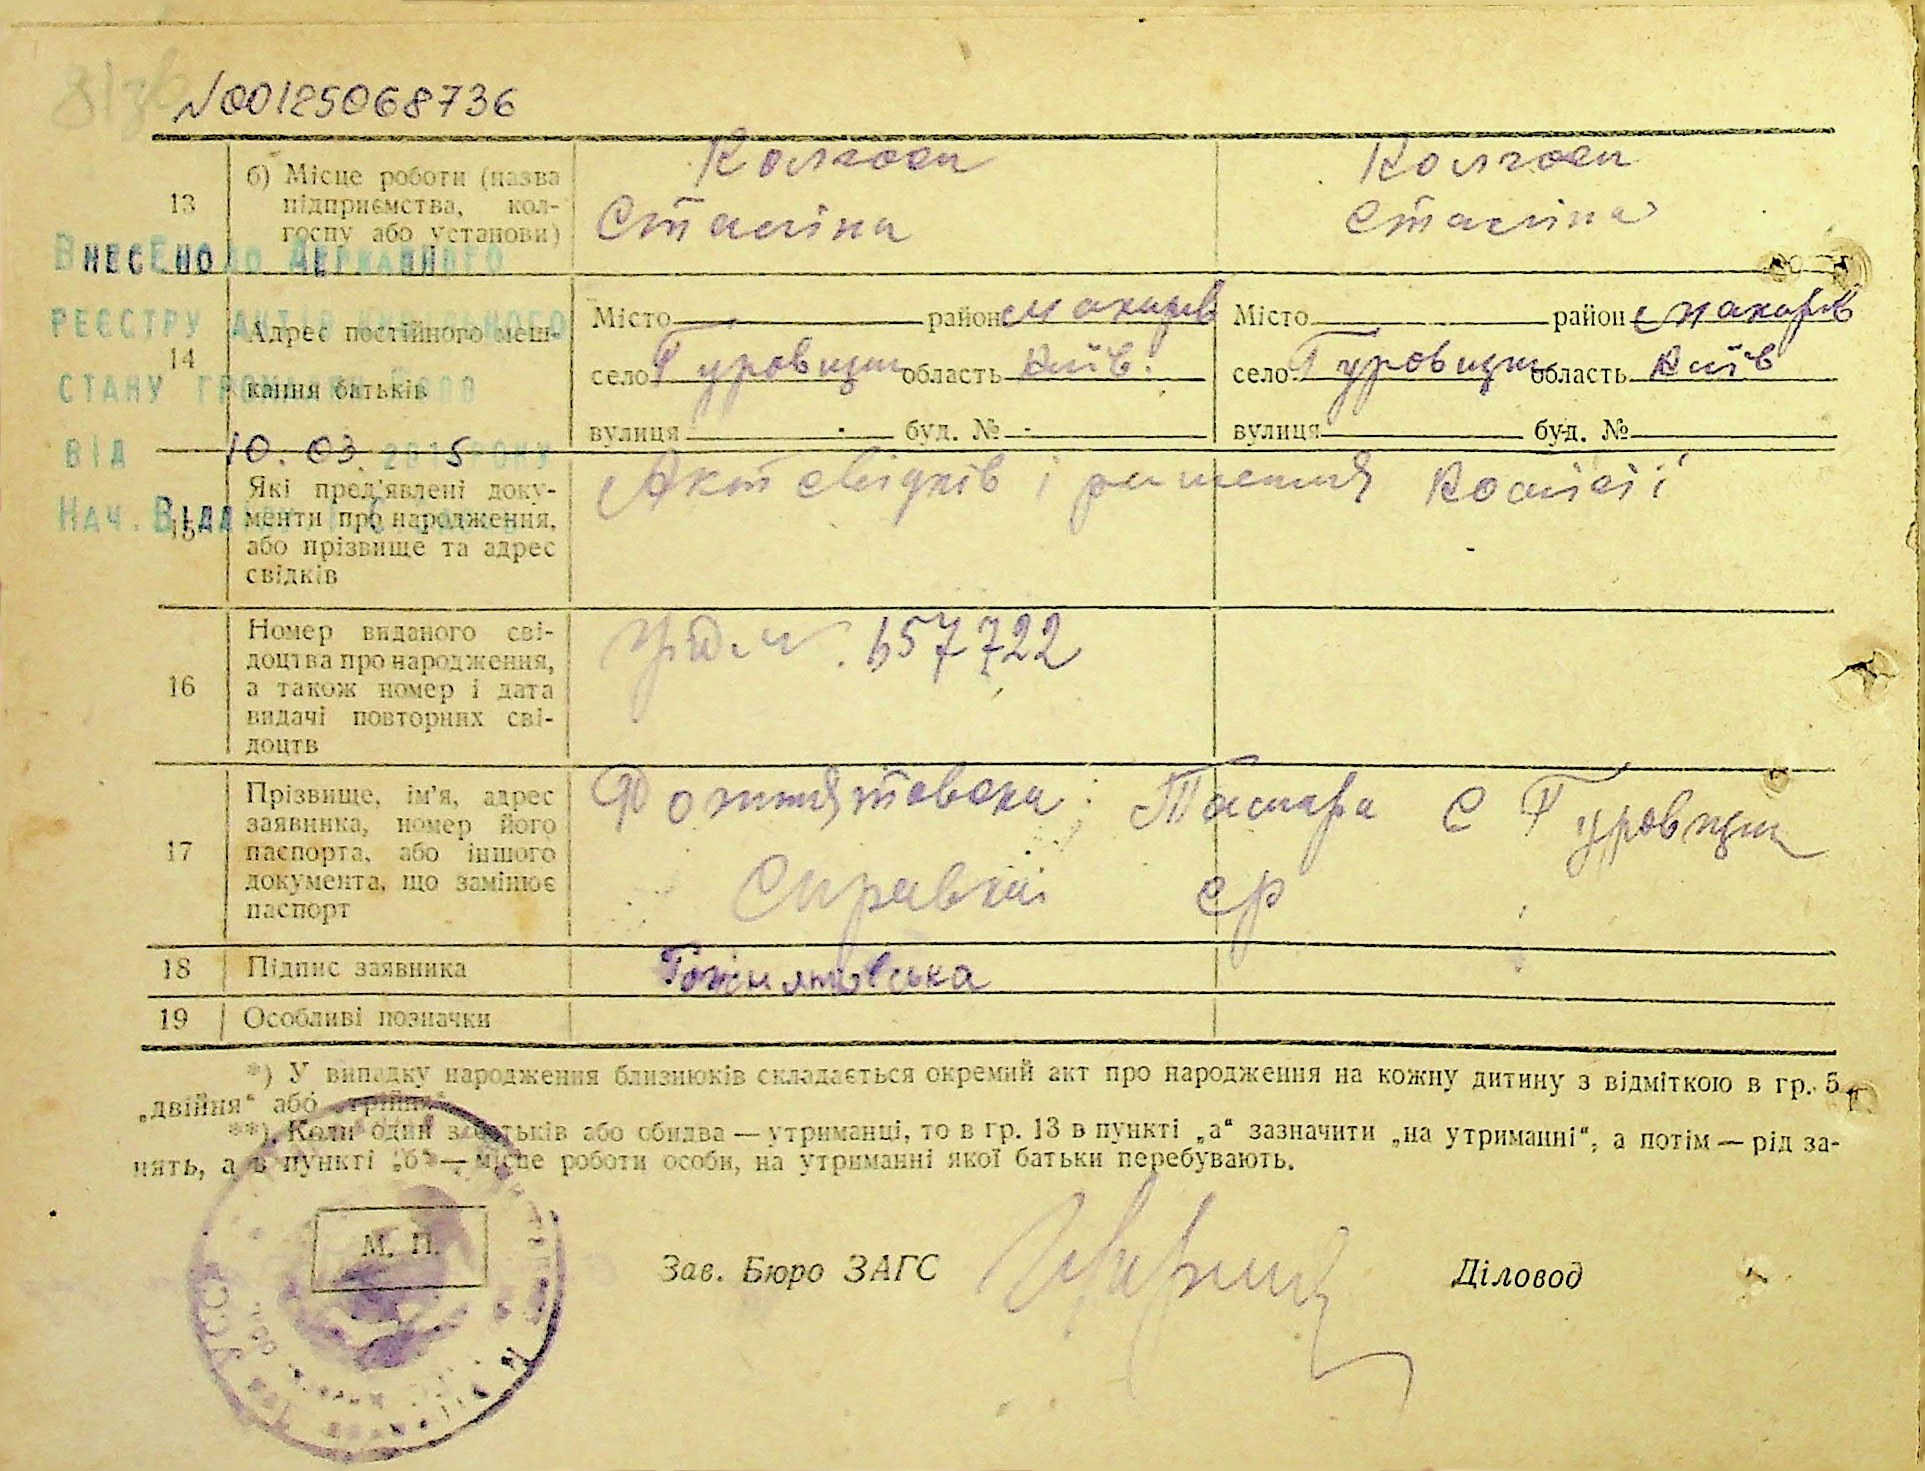 N00125068736
13
б) Місце роботи (назва
підприємства, кол-
госпу або установи)
Колгосп
Сталіна
Колгосп
Сталіна
ВнесЕно до Державного
реєстру актів цивільного
стану громадян було
від 10.03.2015 року
Нач. Відділу
14
Адрес постійного меш-
кання батьків
Місто район Макарів
село Гуровщин область Київ.
вулиця - буд. № -
Місто район Макарів
село Гуровщин область Київ
вулиця буд. №
15
Які пред'явлені доку-
менти про народження,
або прізвище та адрес
свідків
Акт свідків і рішення комісії
16
Номер виданого сві-
доцтва про народження,
а також номер і дата
видачі повторних сві-
доцтв
657722
17
Прізвище, ім'я, адрес
заявника, номер його
паспорта, або іншого
документа, що замінює
паспорт
Тамара с Гуровщин
Справка ср
18
Підпис заявника
Рожнятовська
19
Особливі позначки
*) У випадку народження близнюків складається окремий акт про народження на кожну дитину з відміткою в гр. 5
„двійня“ або „трійня“
**) Коли один з батьків або обидва — утриманці, то в гр. 13 в пункті „а“ зазначити „на утриманні“, а потім — рід за-
нять, а в пункті „б“ — місце роботи особи, на утриманні якої батьки перебувають.
М. П.
Зав. Бюро ЗАГС
Діловод